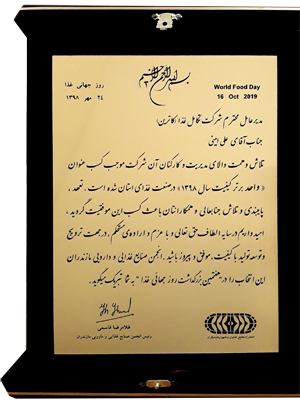 بسم الله الرحمن الرحیم
روز جهانی غذا
۲۴ مهر ۱۳۹۸
World Food Day
16 Oct 2019
مدیرعامل محترم شرکت تکامل غذا (کاترین)
جناب آقای علی امینی
تلاش و همت والای مدیریت و کارکنان آن شرکت موجب کسب عنوان
« واحد برتر کیفیت سال ۱۳۹۸ » در صنعت غذای استان شده است . تعهد ،
پایبندی و تلاش جنابعالی و همکارانتان باعث کسب این موفقیت گردید ،
امید داریم در سایه الطاف حق تعالی و با عزم و اراده‌ی مستحکم ، در جهت ترویج
و توسعه تولید با کیفیت، موفق و پیروز باشید . انجمن صنایع غذایی و دارویی مازندران
این انتخاب را در " هفتمین بزرگداشت روز جهانی غذا " به شما تبریک میگوید.
غلامرضا قاسمی
رئیس انجمن صنایع غذایی و دارویی مازندران